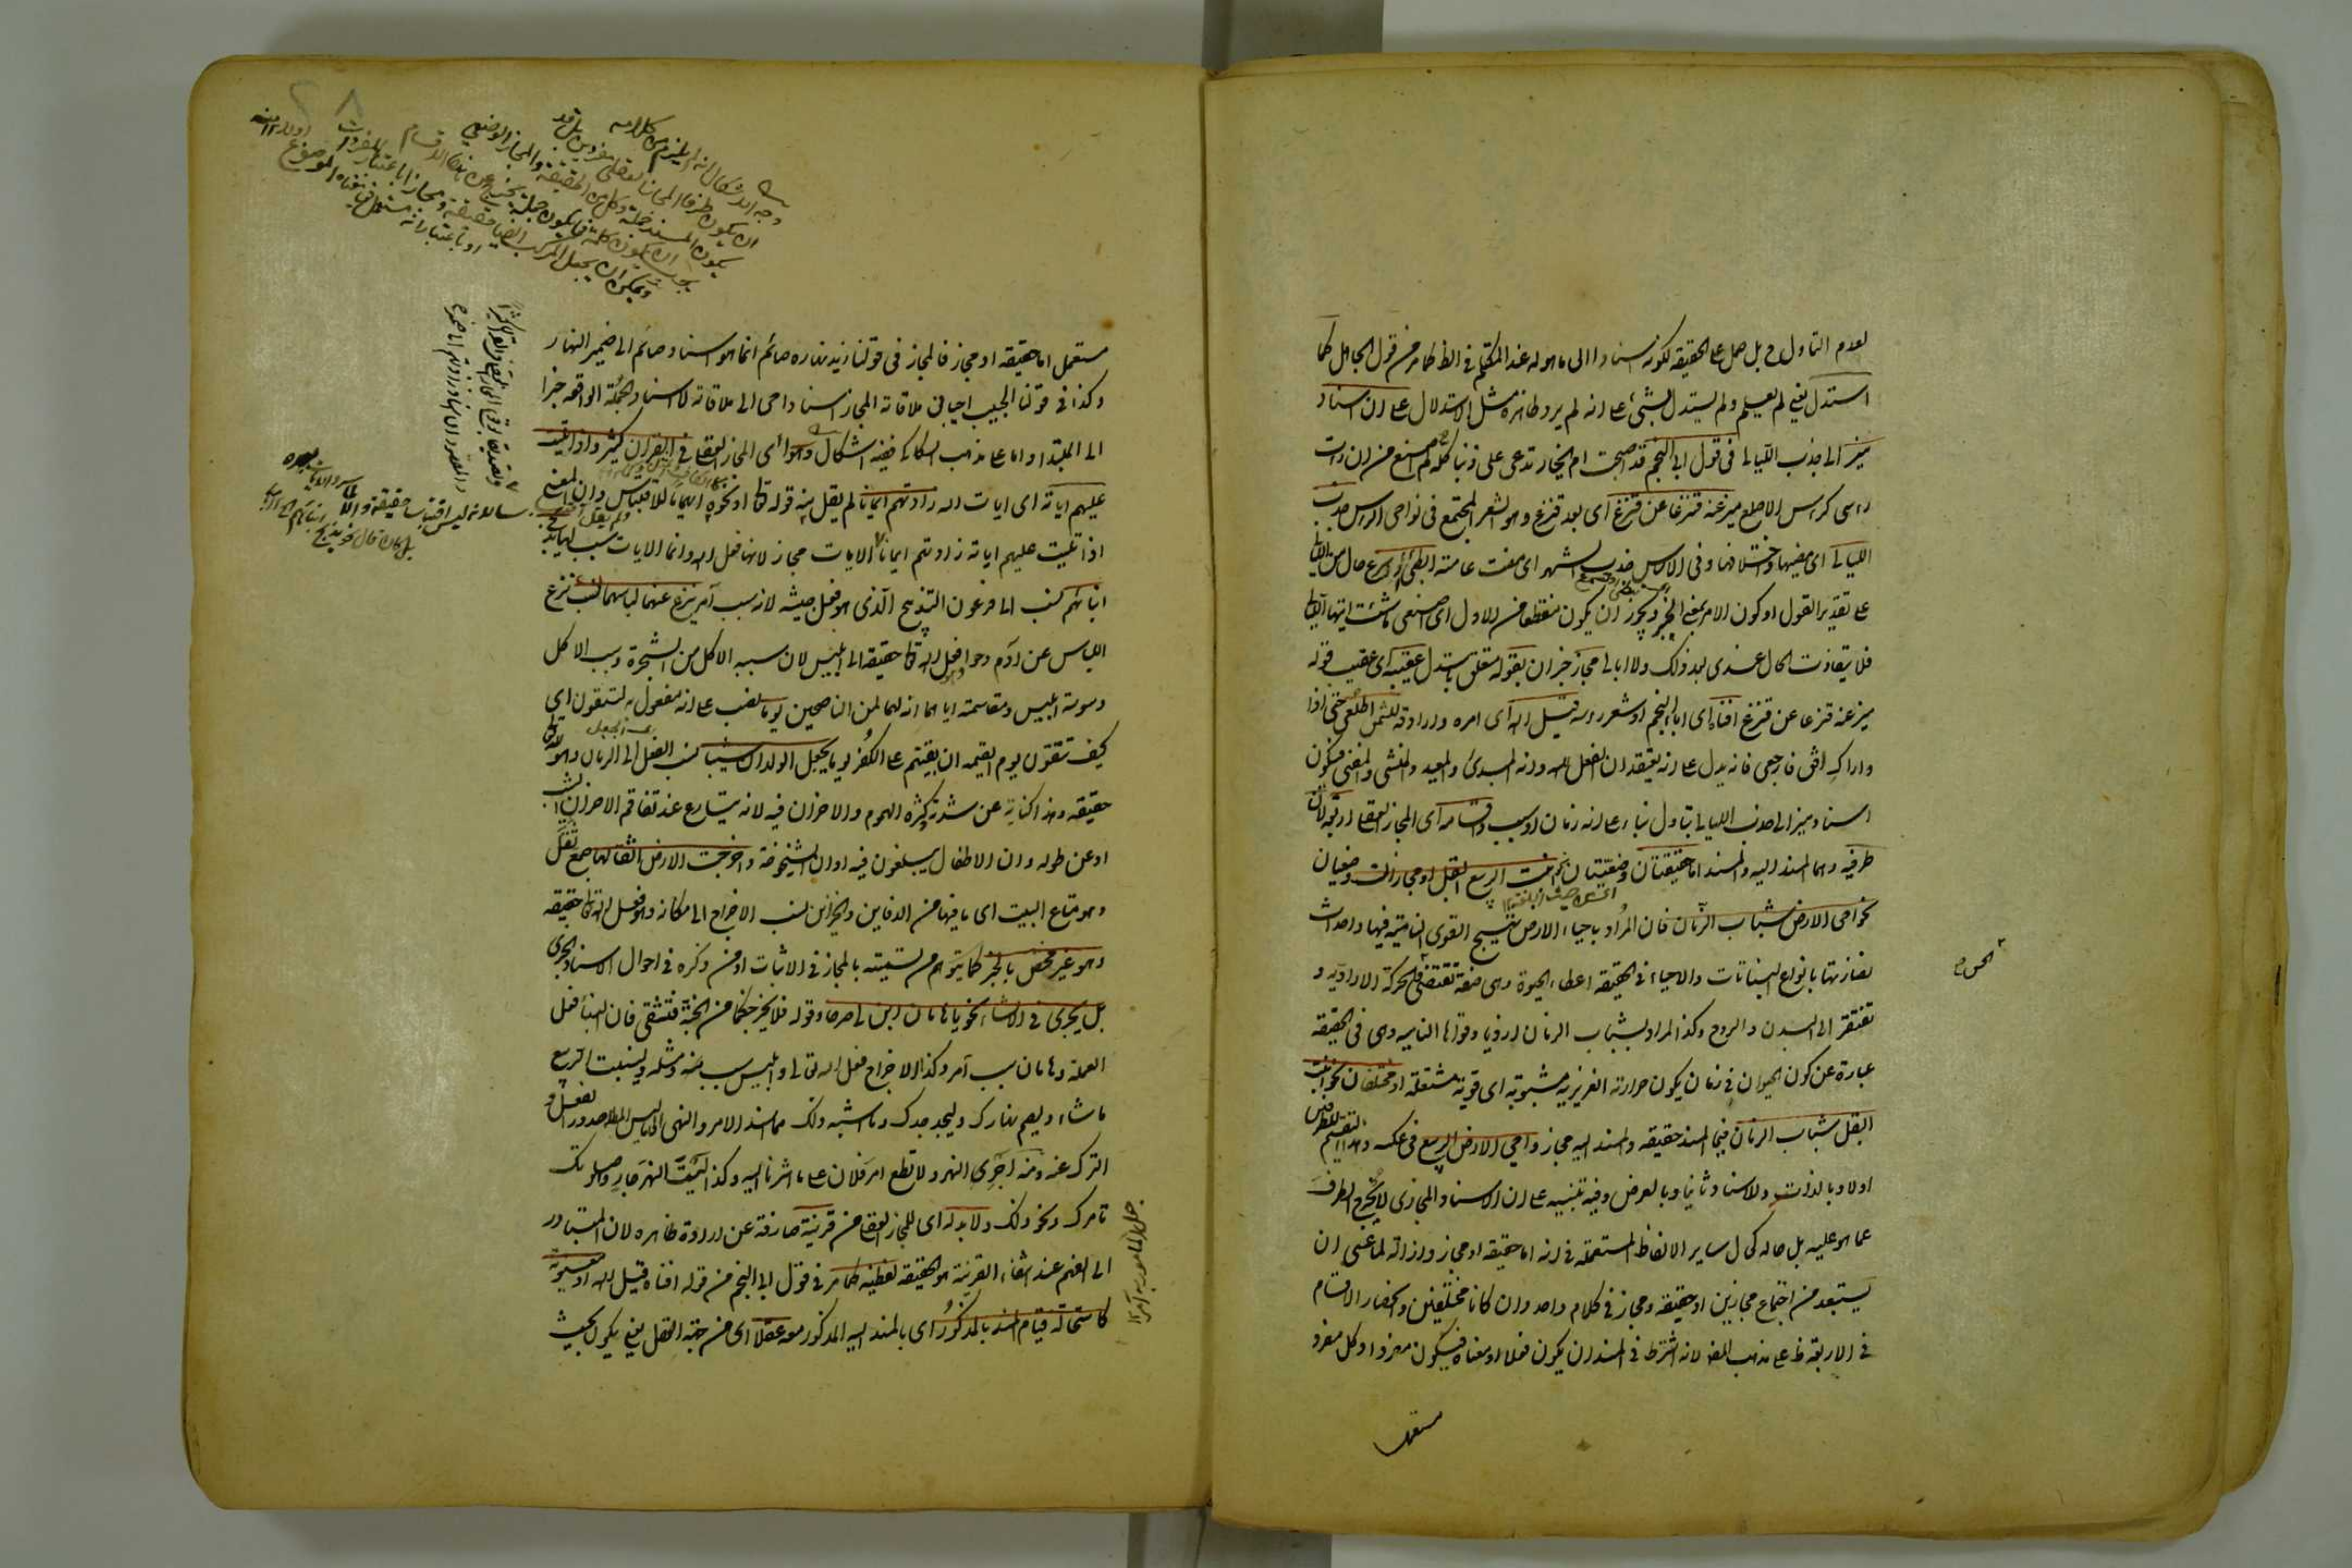 لعدم التاول ح بل حمل على الحقيقة لكونه اسنادا الى ما هو له عند المتكلم فى الظ كما مر من قول الجاهل كما
استدل يعنى لم يعلم ولم يستدل بشئ على انه لم يرد ظاهره مثل الاستدلال على ان اسناد
ميز الى جذب الليالى فى قول ابى النجم قد اصبحت ام الخيار تدعى على ذنبا كله لم اصنع من ان رات
راسى كراس الاصلع ميز عنه قنزعا عن قنزع اى بعد قنزع وهو الشعر المجتمع فى نواحى الراس جذب
الليالى اى مضيها واختلافها وفى الاساس جذب الشهر اى مضت عامته ابطئى او اسرعى حال من الليالى
على تقدير القول او كون الامر بمعنى الخبر ويجوز ان يكون منقطعا من الاول اى اصنعى ما شئت ايتها الليالى
فلا يتفاوت الحال عندى بعد ذلك ولا ابالى مجاز خبر ان بقوله متعلق باستدل عقيبه اى عقيب قوله
ميز عنه قنزعا عن قنزع افناه اى ابا النجم او شعر راسه قيل الله اى امره وارادته للشمس اطلعى حتى اذا
واراك افق فارجعى فانه يدل على انه يعتقد ان الفعل لله وانه المبدئ والمعيد والمنشى والمفنى فيكون
اسناد ميز الى جذب الليالى بتاول بناء على انه زمان او سبب واقسامه اى المجاز العقلى اربعة لان
طرفيه وهما المسند اليه والمسند اما حقيقتان وضعيتان نحو انبت الربيع البقل او مجازان وضعيان
نحو احيى الارض شباب الزمان فان المراد باحياء الارض تهييج القوى النامية فيها واحداث
نضارتها بانواع النباتات والاحياء فى الحقيقة اعطاء الحيوة وهى صفة تقتضى الحس والحركة الارادية و
تفتقر الى البدن والروح وكذا المراد بشباب الزمان ازدياد قواها النامية وهى فى الحقيقة
عبارة عن كون الحيوان فى زمان يكون حرارته الغريزية مشبوبة اى قوية مشتعلة او مختلفان نحو انبت
البقل شباب الزمان فيما المسند حقيقة والمسند اليه مجاز واحيى الارض الربيع فى عكسه وهذا التقسيم للطرفين
اولا وبالذات وللاسناد ثانيا وبالعرض وفيه تنبيه على ان الاسناد المجازى لا يخرج الطرف
عما هو عليه بل حاله كحال ساير الالفاظ المستعملة فى انه اما حقيقة او مجاز وازالة لما عسى ان
يستبعد من اجتماع مجازين او حقيقة ومجاز فى كلام واحد وان كانا مختلفين وانحصار الاقسام
فى الاربعة ظ على مذهب المص لانه اشترط فى المسند ان يكون فعلا او معناه فيكون مفردا وكل مفرد
مستعمل
مستعمل اما حقيقة او مجاز فالمجاز فى قولنا زيد نهاره صائم انما هو اسناد صائم الى ضمير النهار
وكذا فى قولنا الحبيب احيانى ملاقاته المجاز اسناد احيى الى ملاقاته لا اسناد الجملة الواقعة خبرا
الى المبتدا واما على مذهب السكاكى ففيه اشكال وهو اى المجاز العقلى فى القران كثير واذا تليت
عليهم اياته اى ايات الله زادتهم ايمانا لم يقل منه قوله تعا او نحوه ايهاما للاقتباس وان المعنى
اذا تليت عليهم اياته زادتهم ايمانا الايات مجاز لانها فعل الله وانما الايات سبب لها يذبح
ابنائهم نسب الى فرعون التذبيح الذى هو فعل جيشه لانه سبب آمر ينزع عنهما لباسهما نسب نزع
اللباس عن ادم وحوا وهو فعل الله تعا حقيقة الى ابليس لان سببه الاكل من الشجرة وسبب الاكل
وسوسة ابليس ومقاسمته اياهما انه لهما لمن الناصحين يوما نصب على انه مفعول به لتتقون اى
كيف تتقون يوم القيمة ان بقيتم على الكفر يوما يجعل الولدان شيبا نسب الفعل الى الزمان وهو لله تعا
حقيقة وهذا كناية عن شدته وكثرة الهموم والاحزان فيه لانه يتسارع عند تفاقم الاحزان الشيب
او عن طوله وان الاطفال يبلغون فيه اوان الشيخوخة واخرجت الارض اثقالها جمع ثقل
وهو متاع البيت اى ما فيها من الدفاين والخزائن نسب الاخراج الى مكانه وهو فعل الله تعا حقيقة
وهو غير مختص بالخبر كما يتوهم من تسميته بالمجاز فى الاثبات او من ذكره فى احوال الاسناد الخبرى
بل يجرى فى الانشاء نحو يا هامان ابن لى صرحا وقوله فلا يخرجنكما من الجنة فتشقى فان البناء فعل
العملة وهامان سبب آمر وكذا الاخراج فعل الله تعالى وابليس سبب منه ومثله ولينبت الربيع
ما شاء وليصم نهارك وليجد جدك وما اشبه ذلك مما اسند الامر والنهى الى ما ليس المطلوب صدور الفعل او
الترك عنه ومنه اجرى النهر ولا تطع امر فلان على ما اشرنا اليه وكذا ليت النهر جار واصلوتك
تامرك ونحو ذلك ولا بد له اى للمجاز العقلى من قرينة صارفة عن ارادة ظاهره لان المتبادر
الى الفهم عند انتفاء القرينة هو الحقيقة لفظية كما مر فى قول ابى النجم من قوله افناه قيل الله او معنوية
كاستحالة قيام المسند بالمذكور اى بالمسند اليه المذكور معه عقلا اى من جهة العقل يعنى يكون بحيث